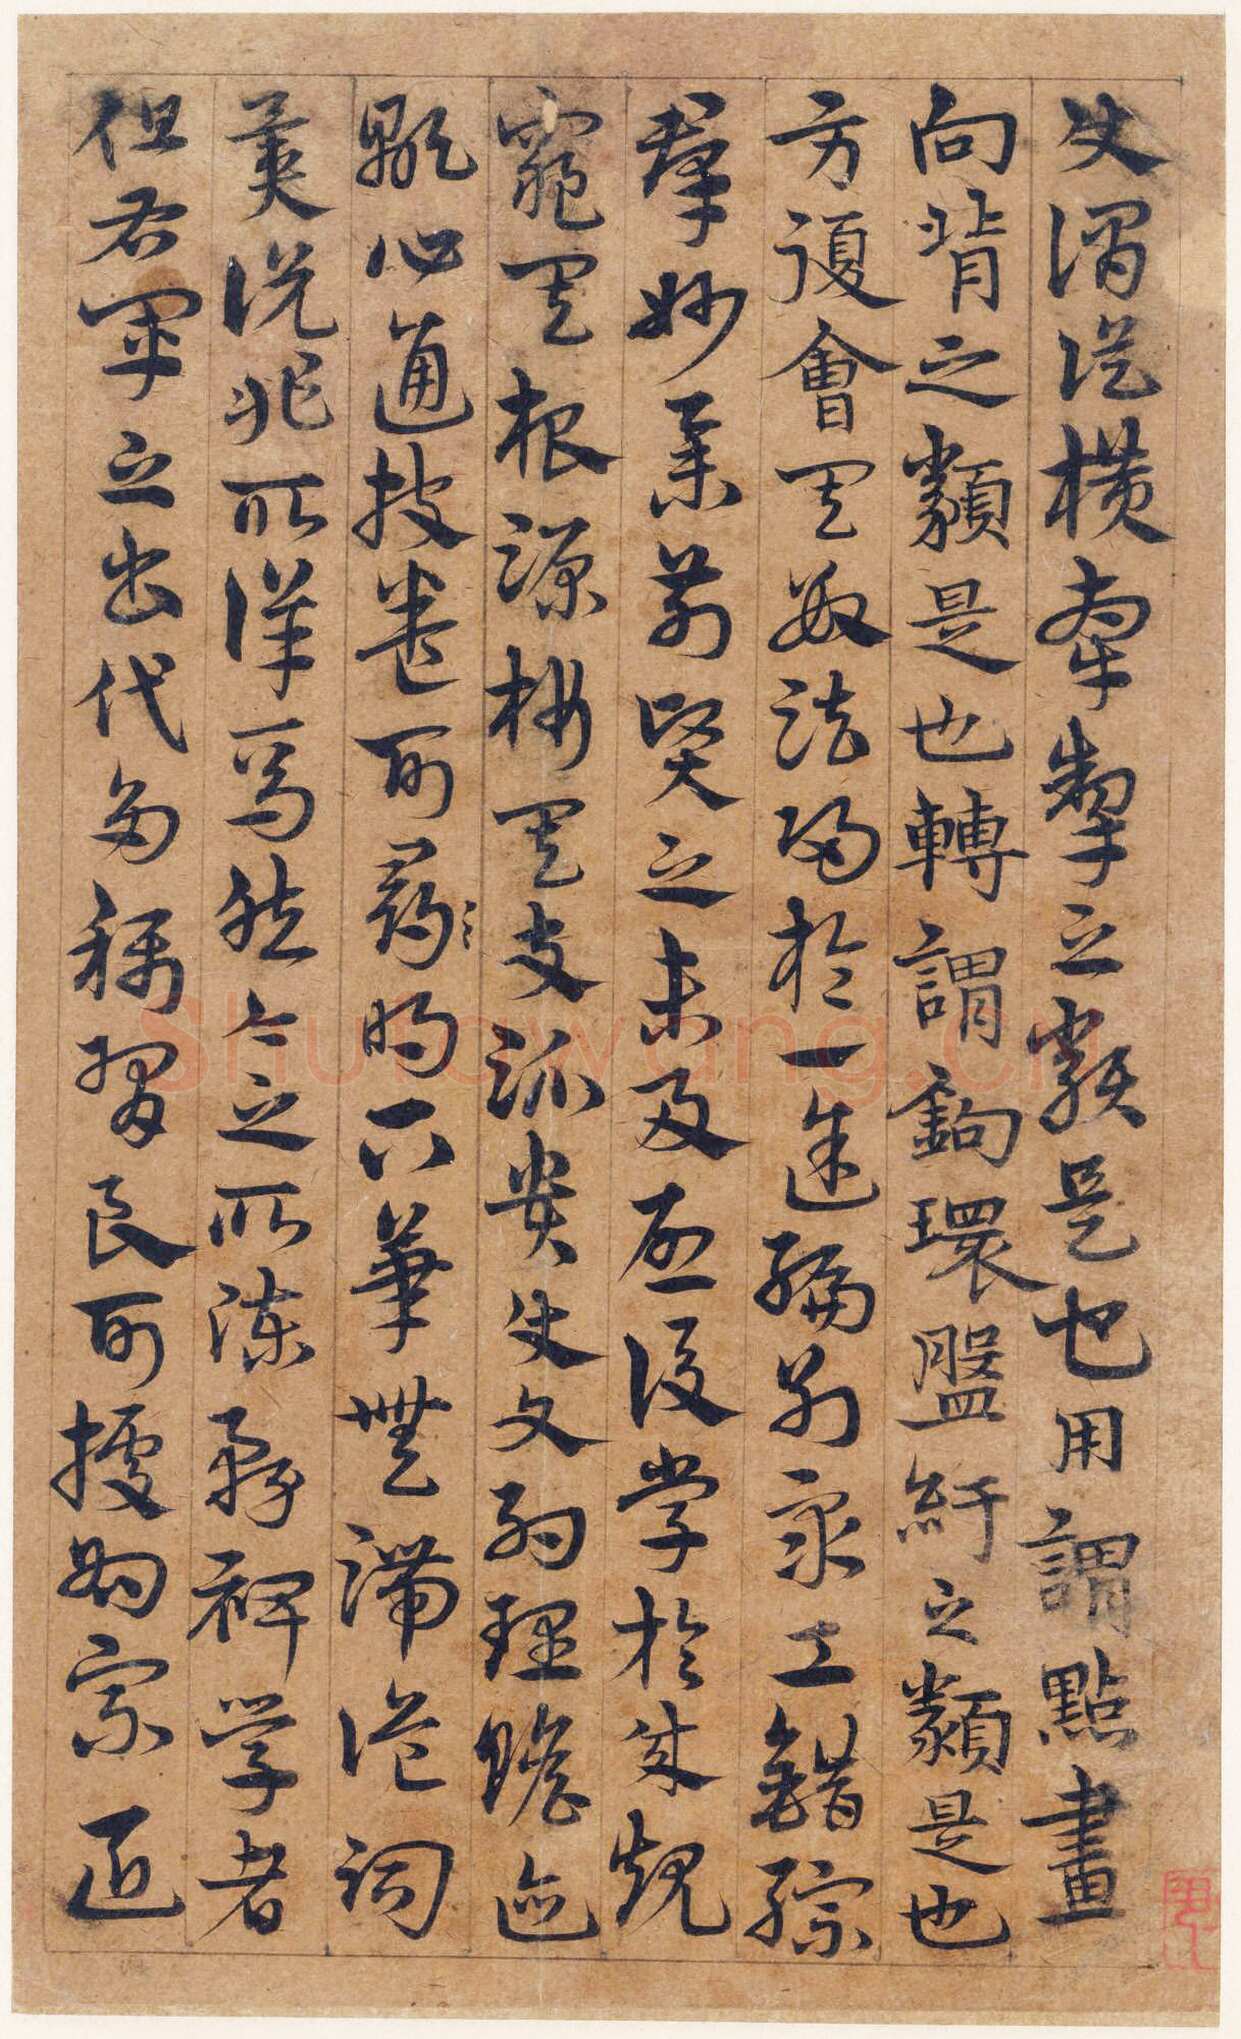 使謂縱橫牽掣之類是也用謂點畫
向背之類是也轉謂鉤環盤紆之類是也
方復會其數法歸於一途編列眾工錯綜
群妙舉前賢之未及啟後學於成規
窺其根源析其支派貴使文約理贍迹
顯心通披卷可明下筆無滯詭詞
異說非所詳焉然今之所陳務裨學者
但右軍之書代多稱習良可據為宗匠
Shufawang.cn